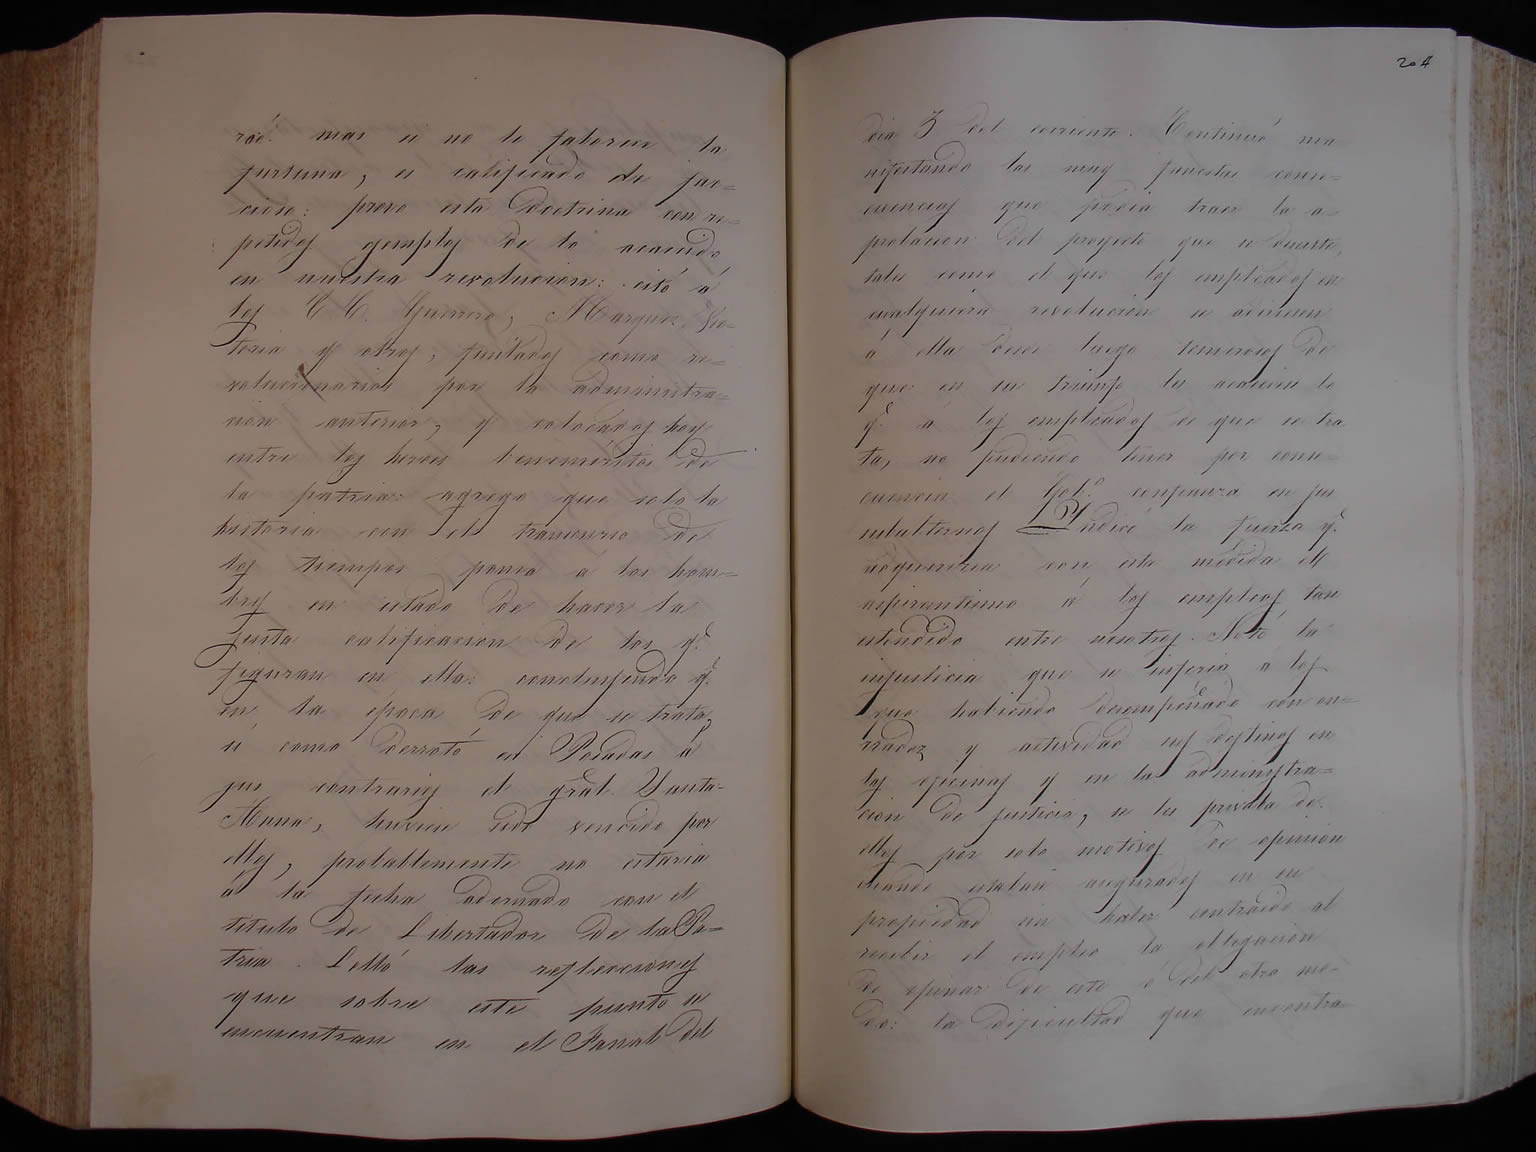 roé: mas si no le faborece la
fortuna, es calificado de fac=
cioso: provo esta Doctrina con re=
petidos ejemplos de lo acaecido
en nuestra revolucion: citó á
los C.C. Guerrero, Marquez, Vic=
toria y otros, fucilados como re=
volucionarios por la administra=
cion anterior, y colocados hoy
entre los heroes benemeritos de
la patria: agrego que solo la
historia con el trancurso de
los tiempos ponia á los hom=
bres en estado de hacer la
justa calificacion de los q.e
figuran en ella: concluyendo q.e
en la época de que se trata,
si como derrotó en Posadas á
sus contrarios el gral. Santa-
Anna, huviese sido vencido por
ellos, probablemente no estaria
á la fecha adornado con el
titulo de Libertador de la Pa=
tria. Leelló las reflecciones
que sobre este punto se
encuentran en el Fanal del
204
dia 3 del corriente. Continuó ma
nifestando las muy funestas conse=
cuencias que podia traer la a=
probacion del proyecto que se discute,
tales como el que los empleados en
cualquiera revolucion se adiesen
á ella desde luego temerosos de
que en su triunfo les acaeciese lo
q.e á los empleados de que se tra
ta, no pudiendo tener por conse=
cuencia el Gob.o confianza en sus
subalternos Yndicó la fuerza q.e
adquiriria con esta medida el
aspirantismo á los empleos tan
estendido entre nosotros. Notó la
injusticia que se inferia á los
que habiendo desempeñado con on=
rradez y actividad sus destinos en
las oficinas y en la administra=
cion de justicia, se les privaba de
ellos por solo motivos de opinion
cuando estaban asegurados en su
propiedad sin haber contraido al
recibir el empleo la obligacion
de opinar de este ó del otro mo=
do: la dificultad que encontra=